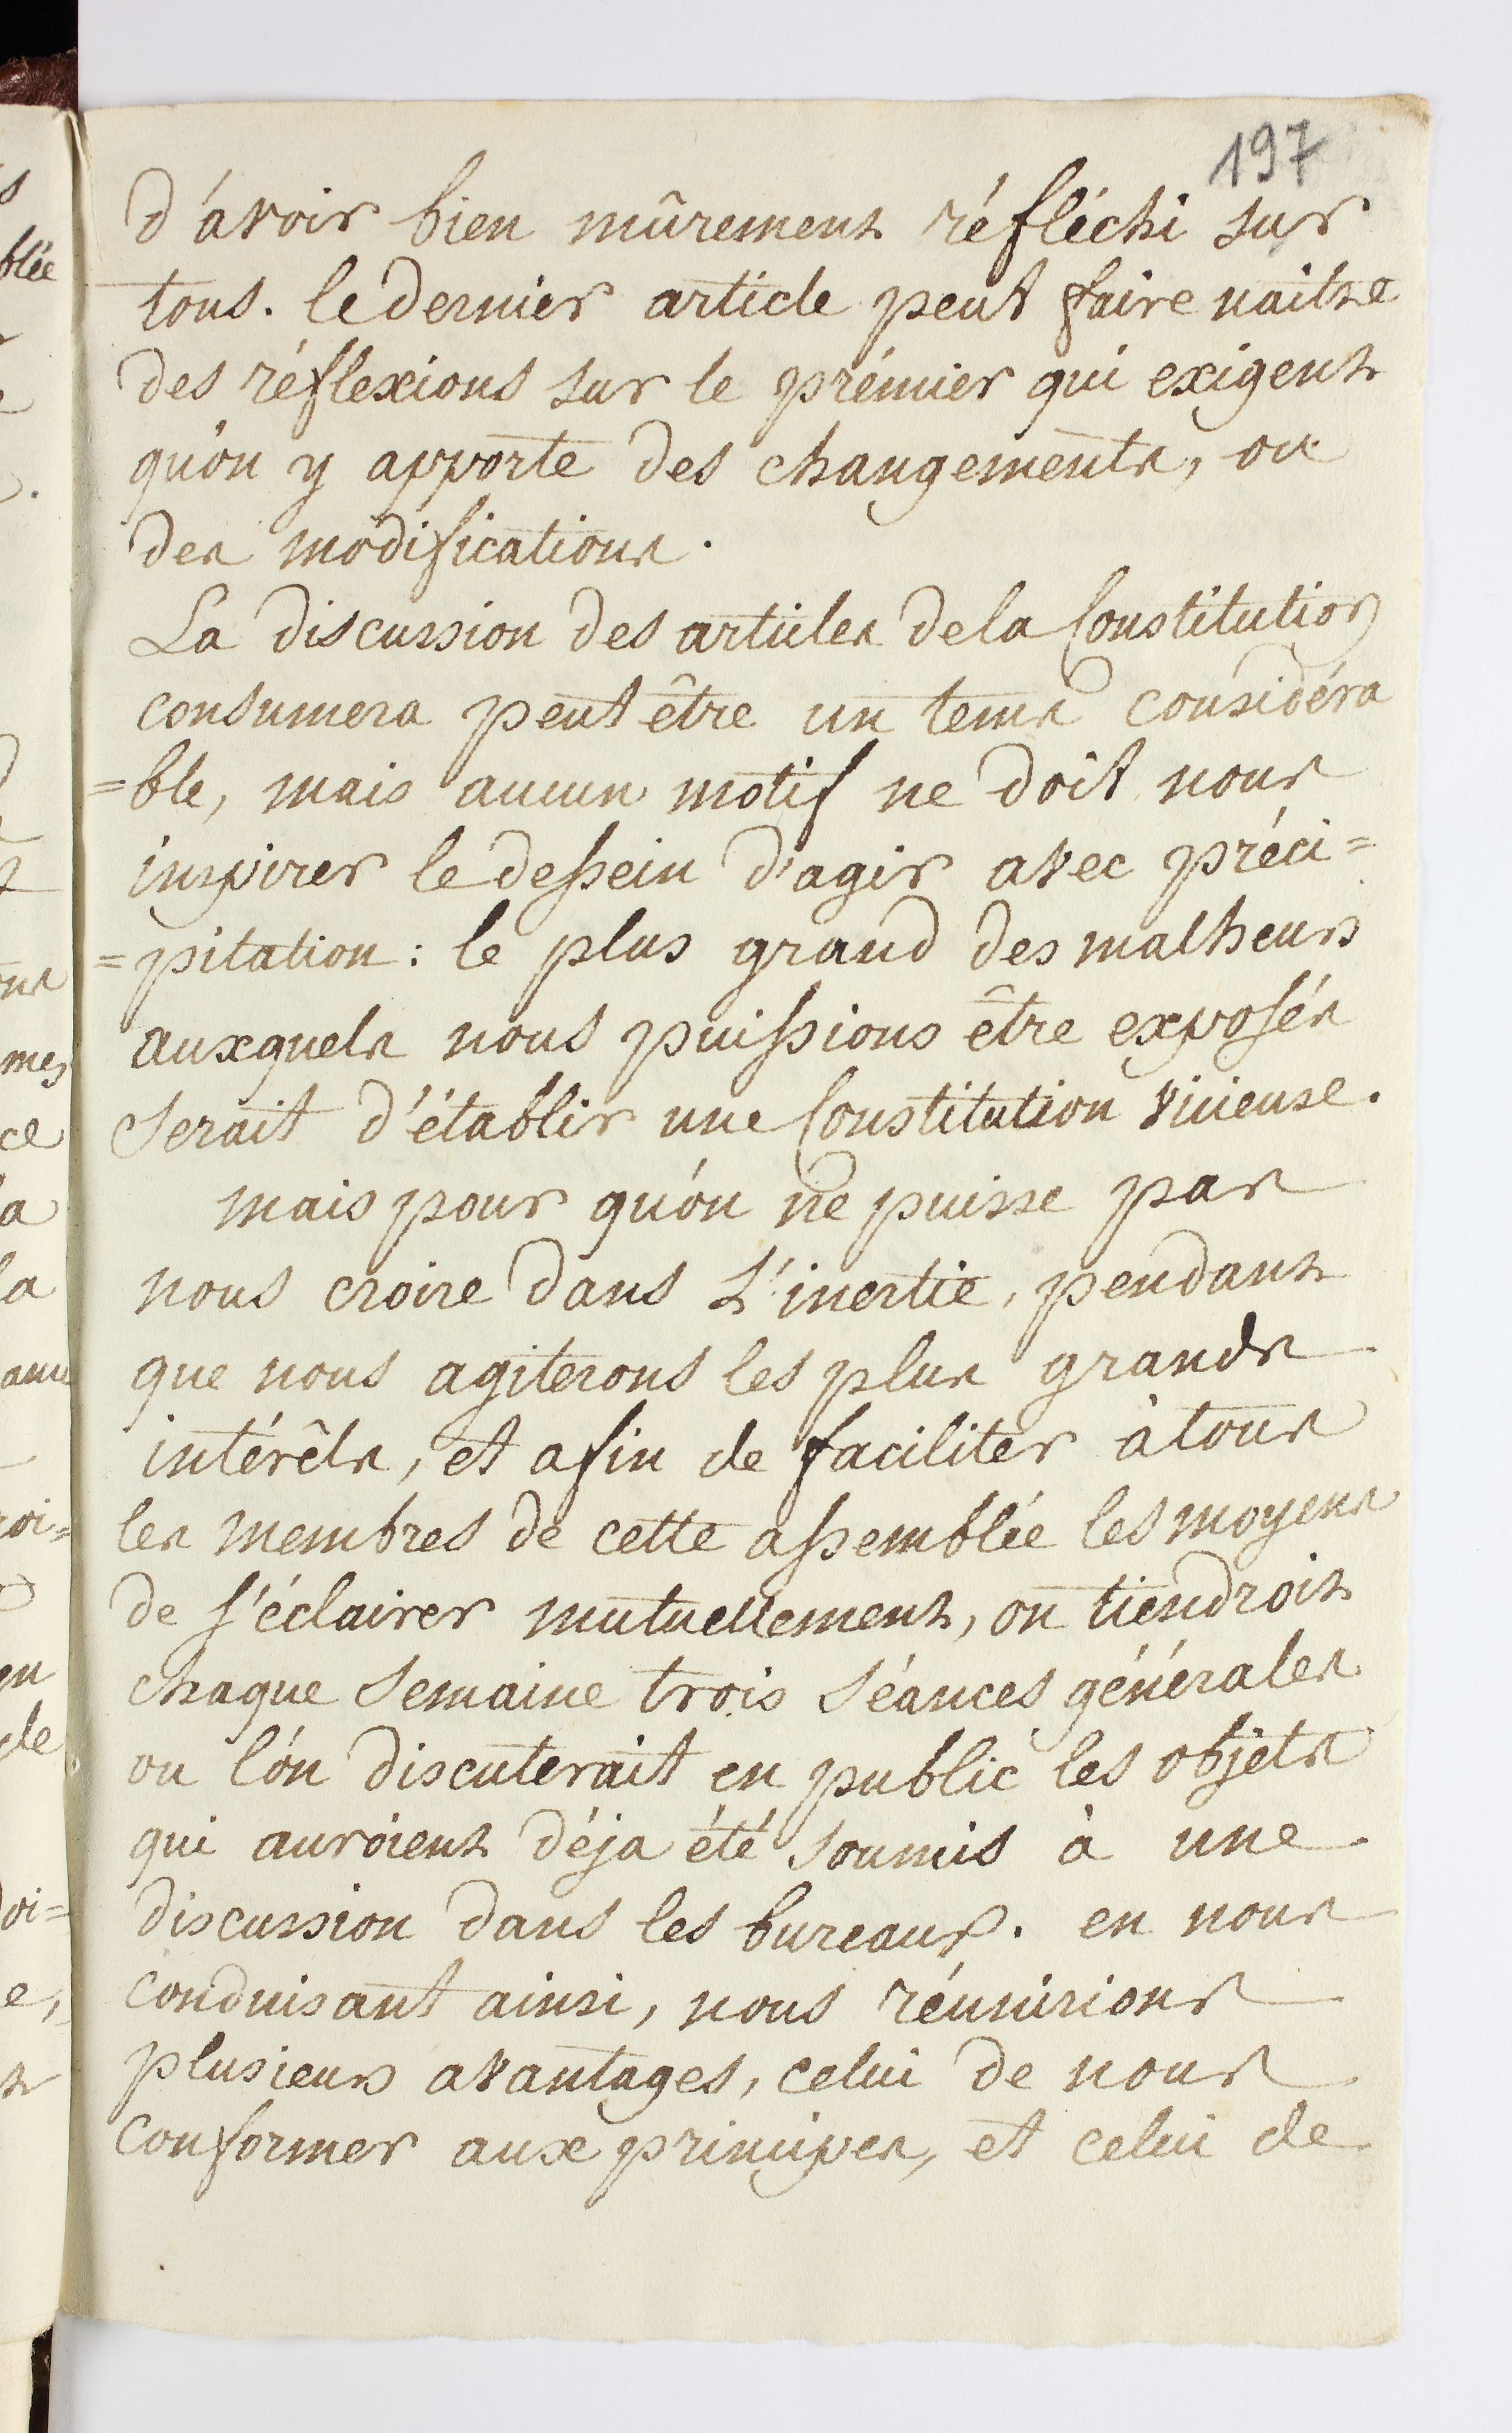 197
d'avoir bien mûrement réfléchi sur
tous. le dernier article peut faire naitre
des réflexions sur le prémier qui exigent
qu'on y apporte des changements, ou
des modifications.
La discussion des articles de la Constitution
consumera peut être un tems considéra
=ble, mais aucun motif ne doit nous
inspirer le dessein d'agir avec préci=
=pitation : le plus grand des malheurs
auxquels nous puissions être exposés
serait d'établir une Constitution vicieuse.
mais pour qu'on ne puisse pas
nous croire dans l'inertie, pendant
que nous agiterons les plus grands
intérêts, et afin de faciliter à tous
les membres de cette assemblée les moyens
de s'éclairer mutuellement, on tiendroit
chaque semaine trois séances générales
ou l'on discuterait en public les objets
qui auroient déja été soumis à une
discussion dans les bureaux. en nous
conduisant ainsi, nous réunirions
plusieurs avantages, celui de nous
conformer aux principes, et celui de